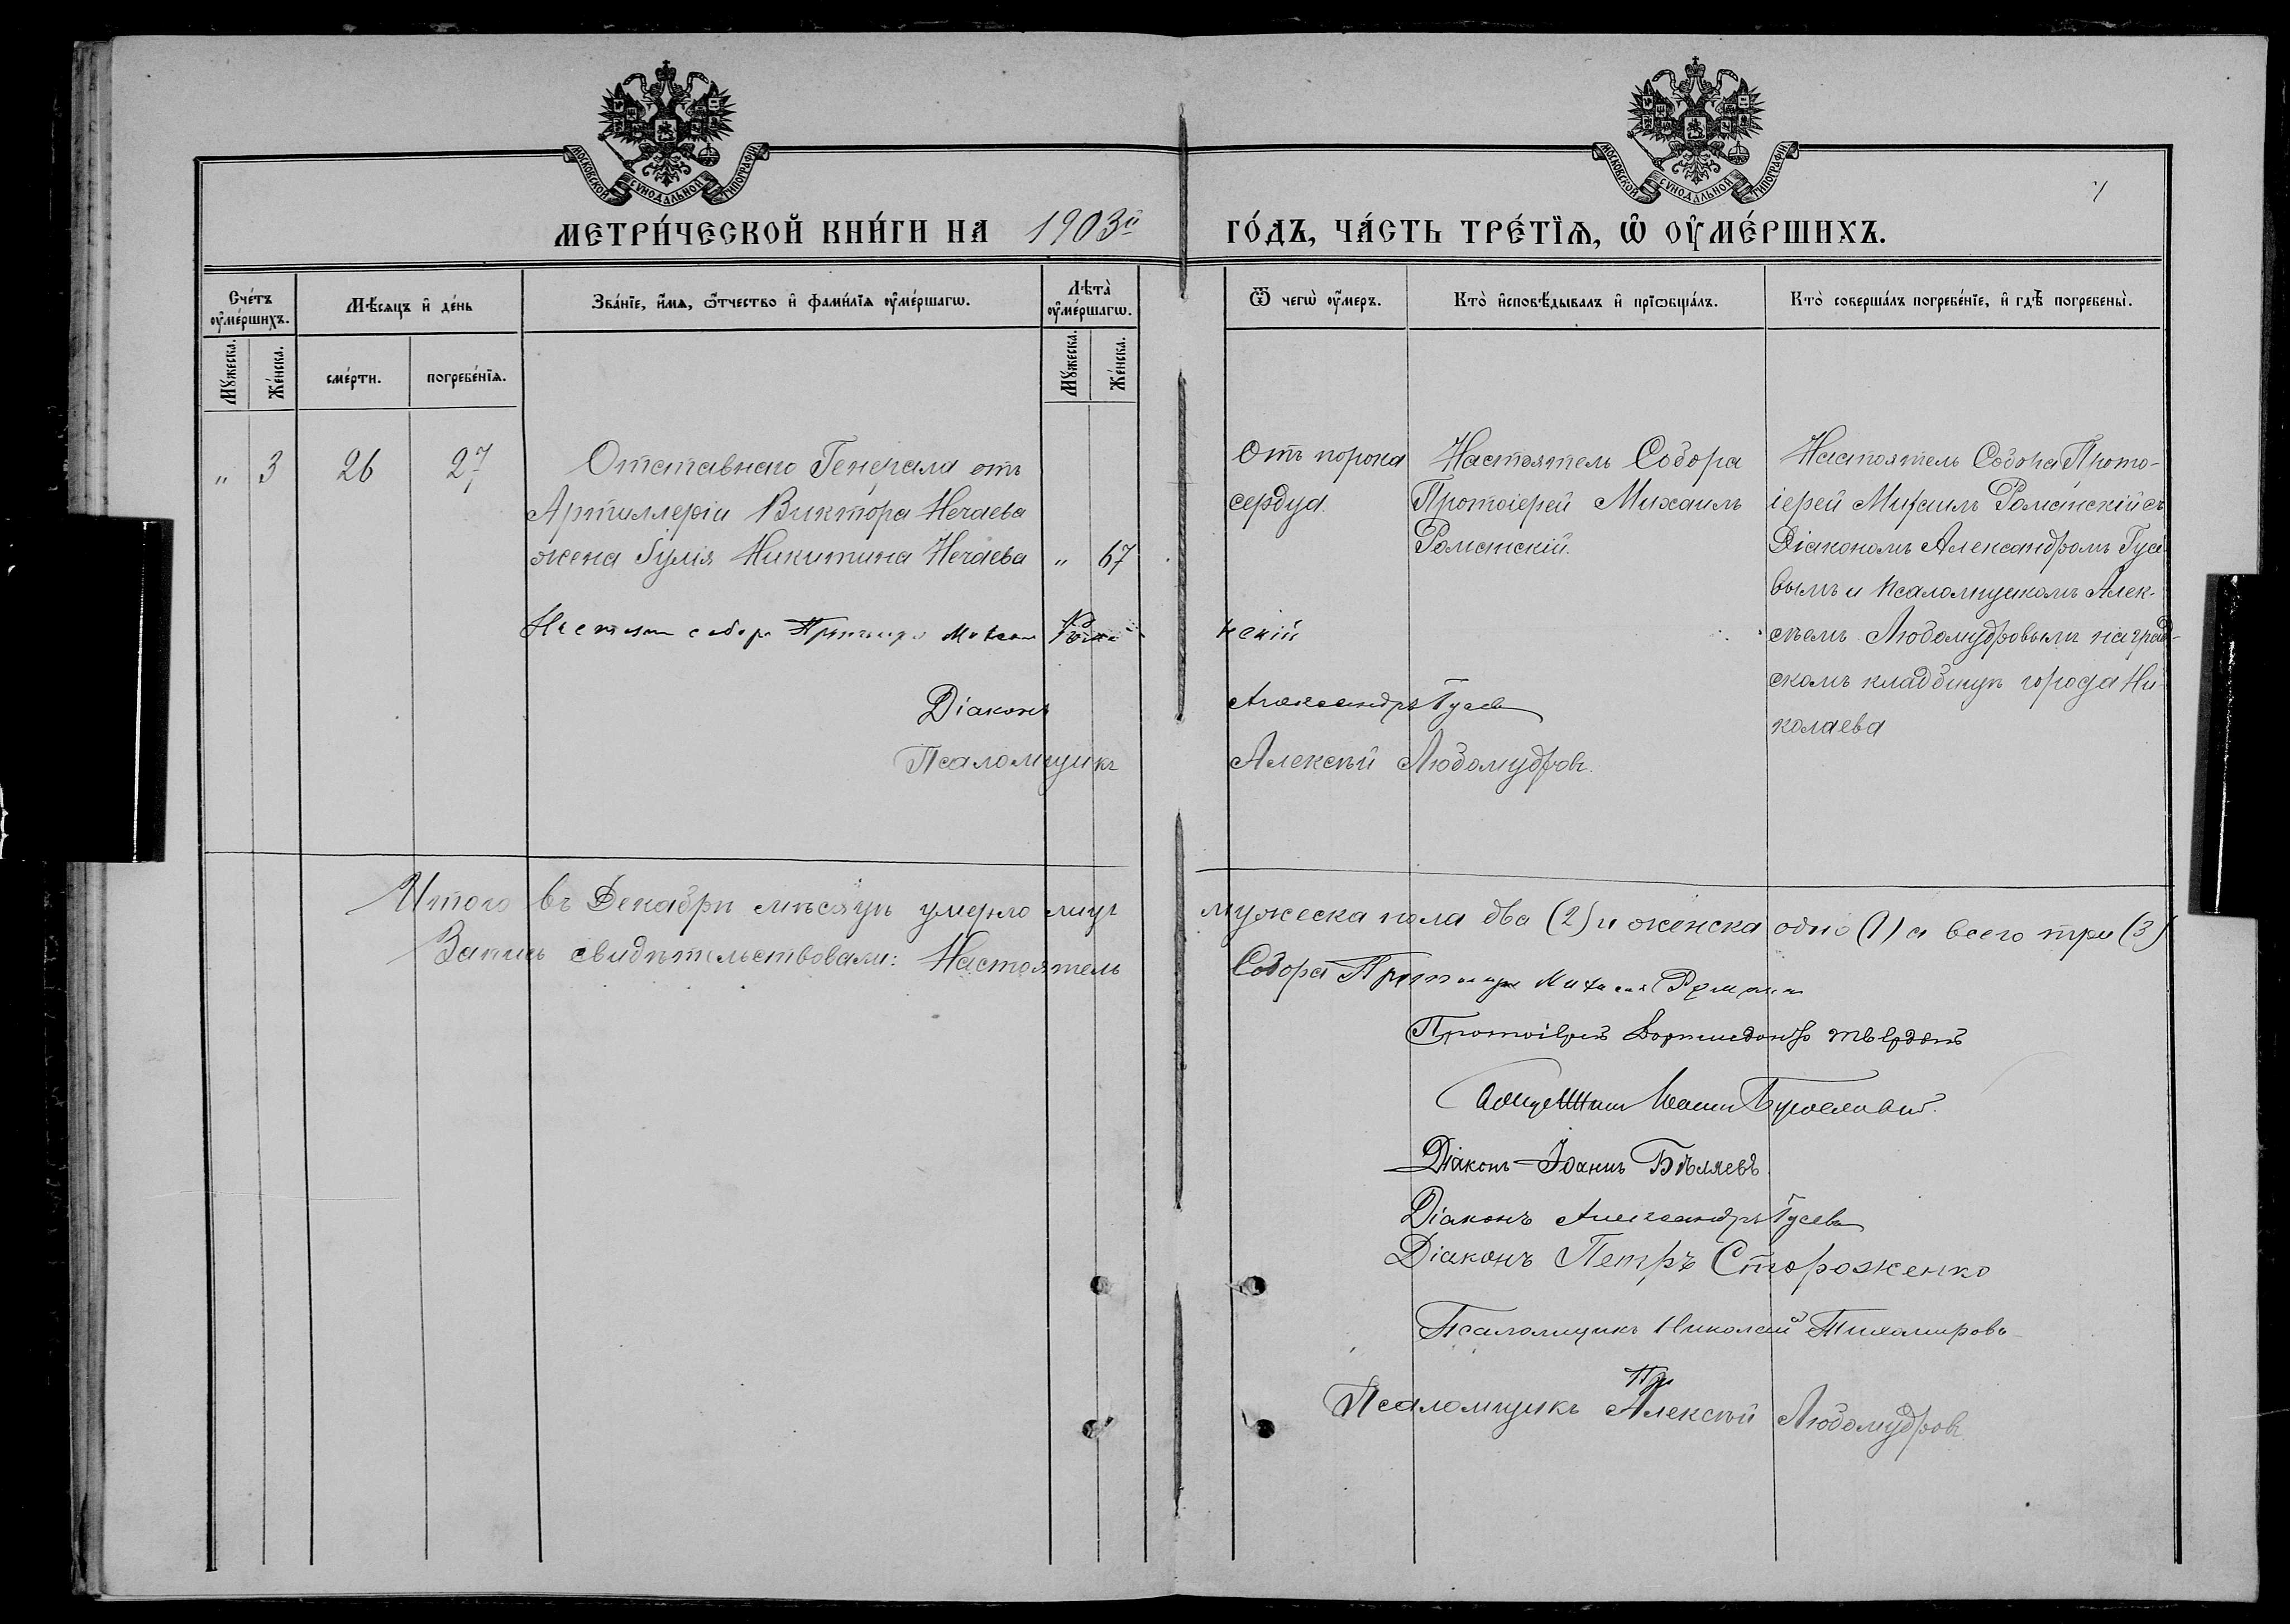 МОСКОВСКОЙ СѴНОДАЛЬНОЙ ТИПОГРАФІИ
МОСКОВСКОЙ СѴНОДАЛЬНОЙ ТИПОГРАФІИ
МЕТРИ́ЧЕСКОЙ КНИ́ГИ НА 1903й ГО́ДЪ, ЧА́СТЬ ТРЕ́ТЇѦ, Ѡ҆ ОУ҆МЕ́РШИХЪ.
Сче́тъ оу҆ме́ршихъ.
Мꙋ́жеска.
Же́нска.
Мѣ́сѧцъ и҆ де́нь
сме́рти.
погребе́нїѧ.
Зва́нїе, и҆́мѧ, ѻ҆́тчество и҆ фами́лїѧ оу҆ме́ршагѡ.
Лѣта̀ оу҆ме́ршагѡ.
Мꙋ́жеска.
Же́нска.
Ѿ чегѡ̀ оу҆́меръ.
Кто̀ и҆сповѣ́дывалъ и҆ прїѡбща́лъ.
Кто̀ соверша́лъ погребе́нїе, и҆ гдѣ̀ погребены̀.
" 3 26 27
Отставнаго Генерала отъ
Артиллеріи Виктора Нечаева
жена Іулія Никитина Нечаева " 67
Отъ порока
сердца.
Настоятель Собора
Протоіерей Михаилъ
Романскій.
Настоятель Собора Прото-
іерей Михаилъ Романскій съ
Діакономъ Александромъ Гусе-
вымъ и псаломщикомъ Алек-
сѣемъ Любомудровымъ на град-
скомъ кладбищѣ города Ни-
колаева
Діаконъ Александръ Гусевъ
Псаломщикъ Алексѣй Любомудровъ.
Итого въ Декабрѣ мѣсяцѣ умерло муж мужеска пола два (2) и женска одно (1) а всего три (3)
Запись свидѣтельствовали: Настоятель Собора Протоіерей Михаилъ Романскій
Протоіерей
Діаконъ Іоаннъ Бѣляевъ.
Діаконъ Александръ Гусевъ
Діаконъ Петръ Стороженко
Псаломщикъ Николай Тихомировъ
Псаломщикъ Алексѣй Любомудровъ